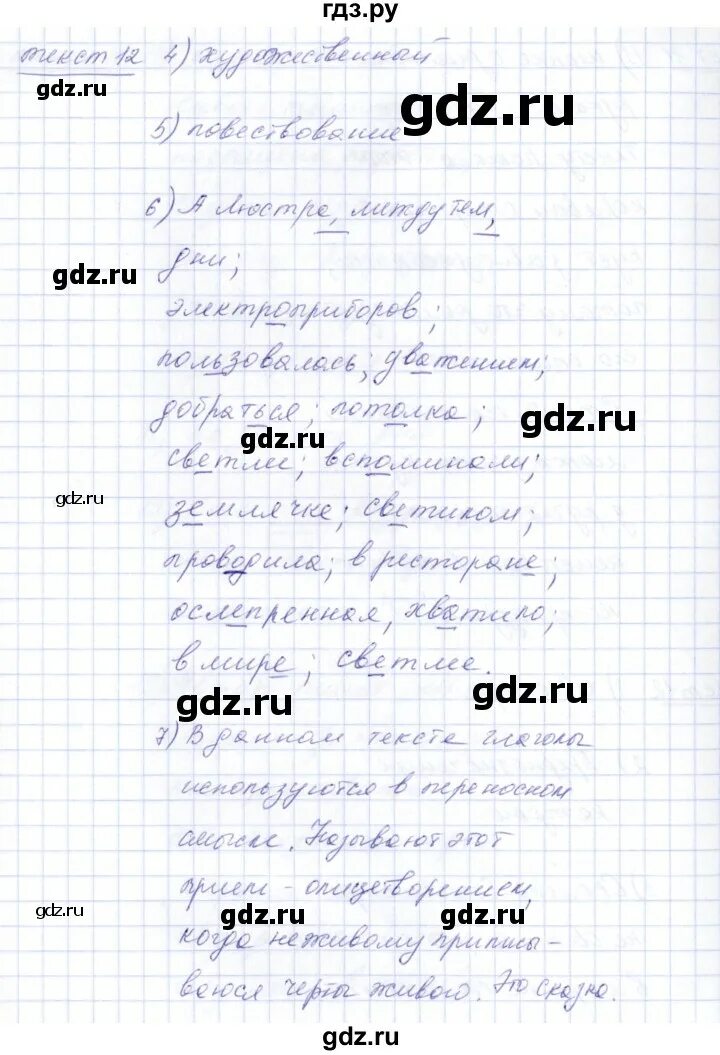 гдз.ру
текст 12 4) художественный
gdz.ru
gdz.ru
5) повествование
6) А люстра, между тем,
gdz.ru
дни;
электроприборов;
пользовалась; уважением;
добраться; потолка;
gdz.ru
gdz.ru
светлее; вспоминали;
gdz.ru
землячке; светиком;
gdz.ru
проводила; в ресторане;
ослепренная, хватило;
в мире; светлее.
gdz.ru
gdz.ru
7) В данном тексте глаголы
используются в переносном
смысле. Называют этот
приём - олицетворением,
gdz.ru
gdz.ru
gdz.ru
когда неживому приписы-
ваюся черты живого. Это сказка.
gdz.ru